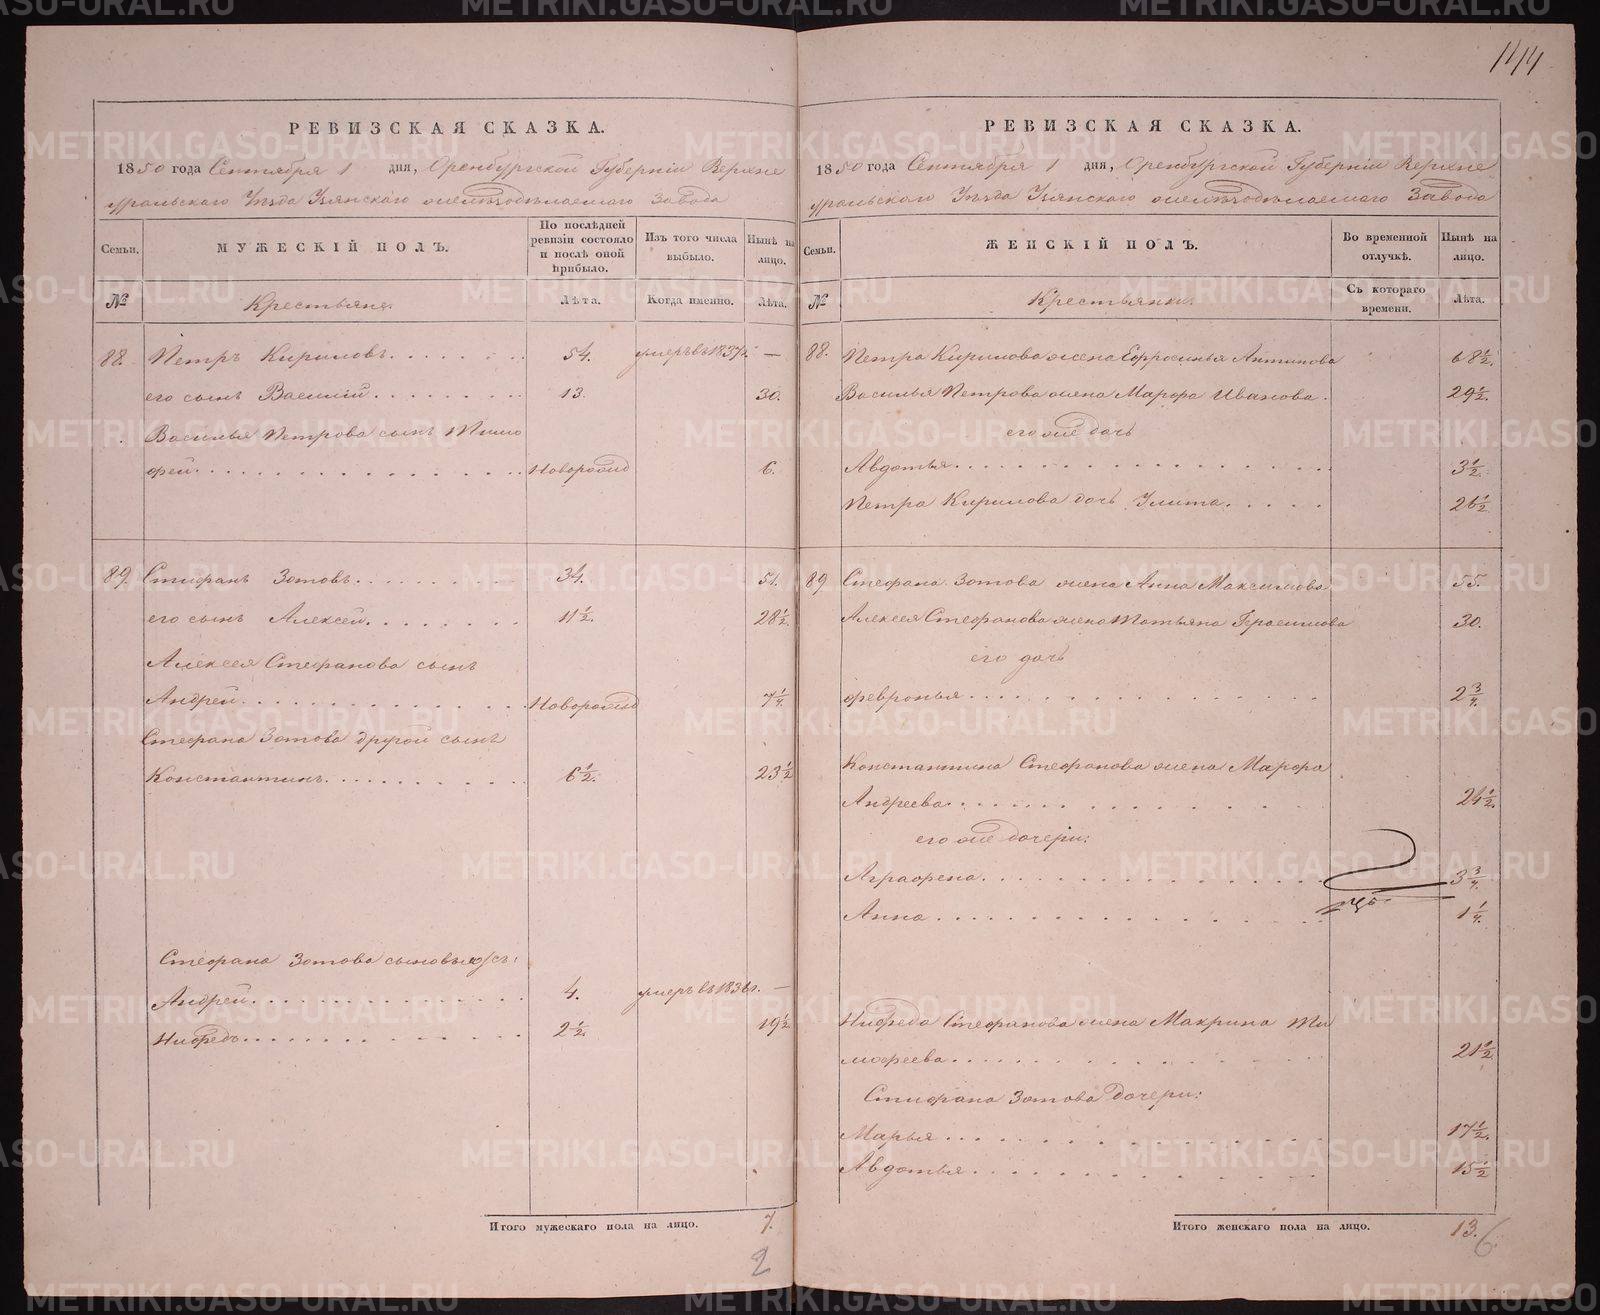 144
РЕВИЗСКАЯ СКАЗКА.
1850 года Сентября 1 дня, Оренбургской Губерніи Верхне
уральскаго Уѣзда Узянскаго желѣзодѣлаемаго Завода
Семьи.
МУЖЕСКІЙ ПОЛЪ.
По послѣдней ревизіи состояло и послѣ оной прибыло.
Изъ того числа выбыло.
Нынѣ на лицо.
№
Крестьяне.
Лѣта.
Когда именно.
Лѣта.
88. Петръ Кириловъ. 54. умеръ въ 1837г. —
его сынъ Василій. 13. 30.
Василья Петрова сынъ Тимо
фей. Новорожд 6.
89. Стифанъ Зотовъ. 34. 51.
его сынъ Алексей. 11 1/2. 28 1/2.
Алексея Стефанова сынъ
Андрей. Новорожд 7 1/4.
Стефана Зотова другой сынъ
Константинъ. 6 1/2. 23 1/2
Стефана Зотова сыновья:
Андрей. 4. умеръ въ 1836г. —
Нифедъ. 2 1/2. 19 1/2
Итого мужескаго пола на лицо. 7.
2
РЕВИЗСКАЯ СКАЗКА.
1850 года Сентября 1 дня, Оренбургской Губерніи Верхне
уральскаго Уѣзда Узянскаго желѣзодѣлаемаго Завода
Семьи.
ЖЕНСКІЙ ПОЛЪ.
Во временной отлучкѣ.
Нынѣ на лицо.
№
Крестьянки.
Съ котораго времени.
Лѣта.
88. Петра Кирилова жена Ефросинья Антипова 68 1/2.
Василья Петрова жена Марфа Иванова. 29 1/2.
его же дочь
Авдотья. 3 1/2.
Петра Кирилова дочь Улита. 26 1/2
89 Стефана Зотова жена Анна Максимова 55.
Алексея Стефанова жена Татьяна Герасимова 30.
его дочь
Февронья. 2 3/4.
Константина Стефанова жена Марфа
Андреева. 24 1/2.
его же дочери:
Аграфена. 3 3/4.
Анна. 1 1/4.
Нифеда Стефанова жена Макрина Ти
мофеева. 21 1/2
Стифана Зотова дочери:
Марья. 17 1/2.
Авдотья. 15 1/2
Итого женскаго пола на лицо. 13.
6
METRIKI.GASO-URAL.RU